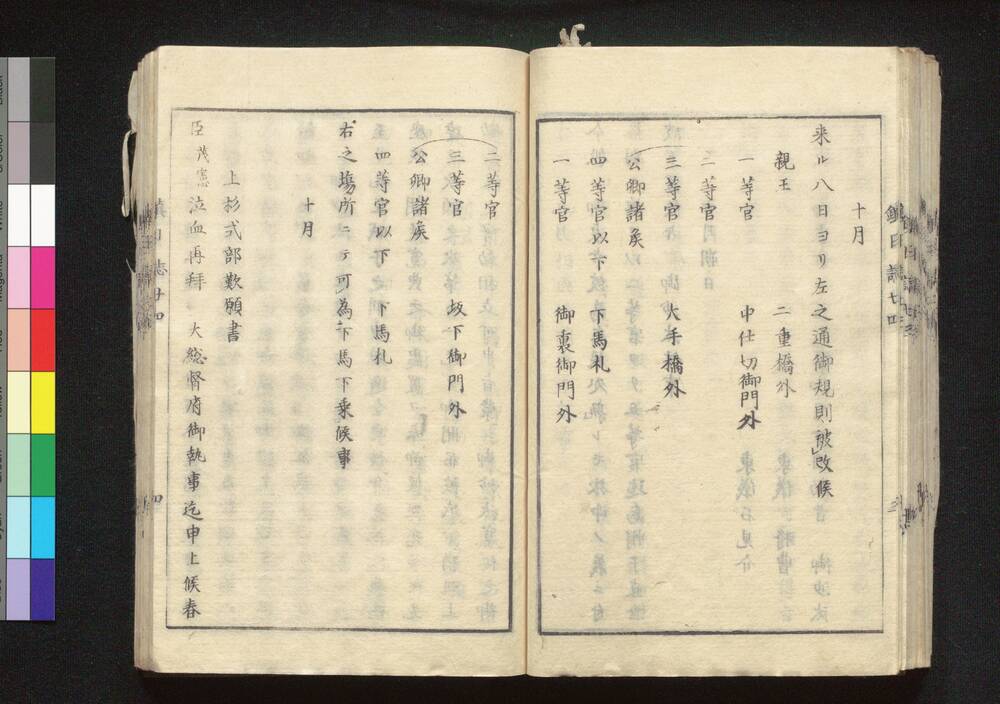 十月
来ル八日ヨリ左之通御規則被改候
親王　二重橋外
一等官　中仕切御門外
二等官
三等官　大手橋外
公卿諸矦
四等官以下　下馬札
一等官　御裏御門外
二等官
三等官　坂下御門外
公卿諸矦
四等官以下　下馬札
右之塲所ニテ可為下馬下乗候事
十月
上杉式部歎願書
臣茂憲泣血再拜　大総督府御執事迄申上候春